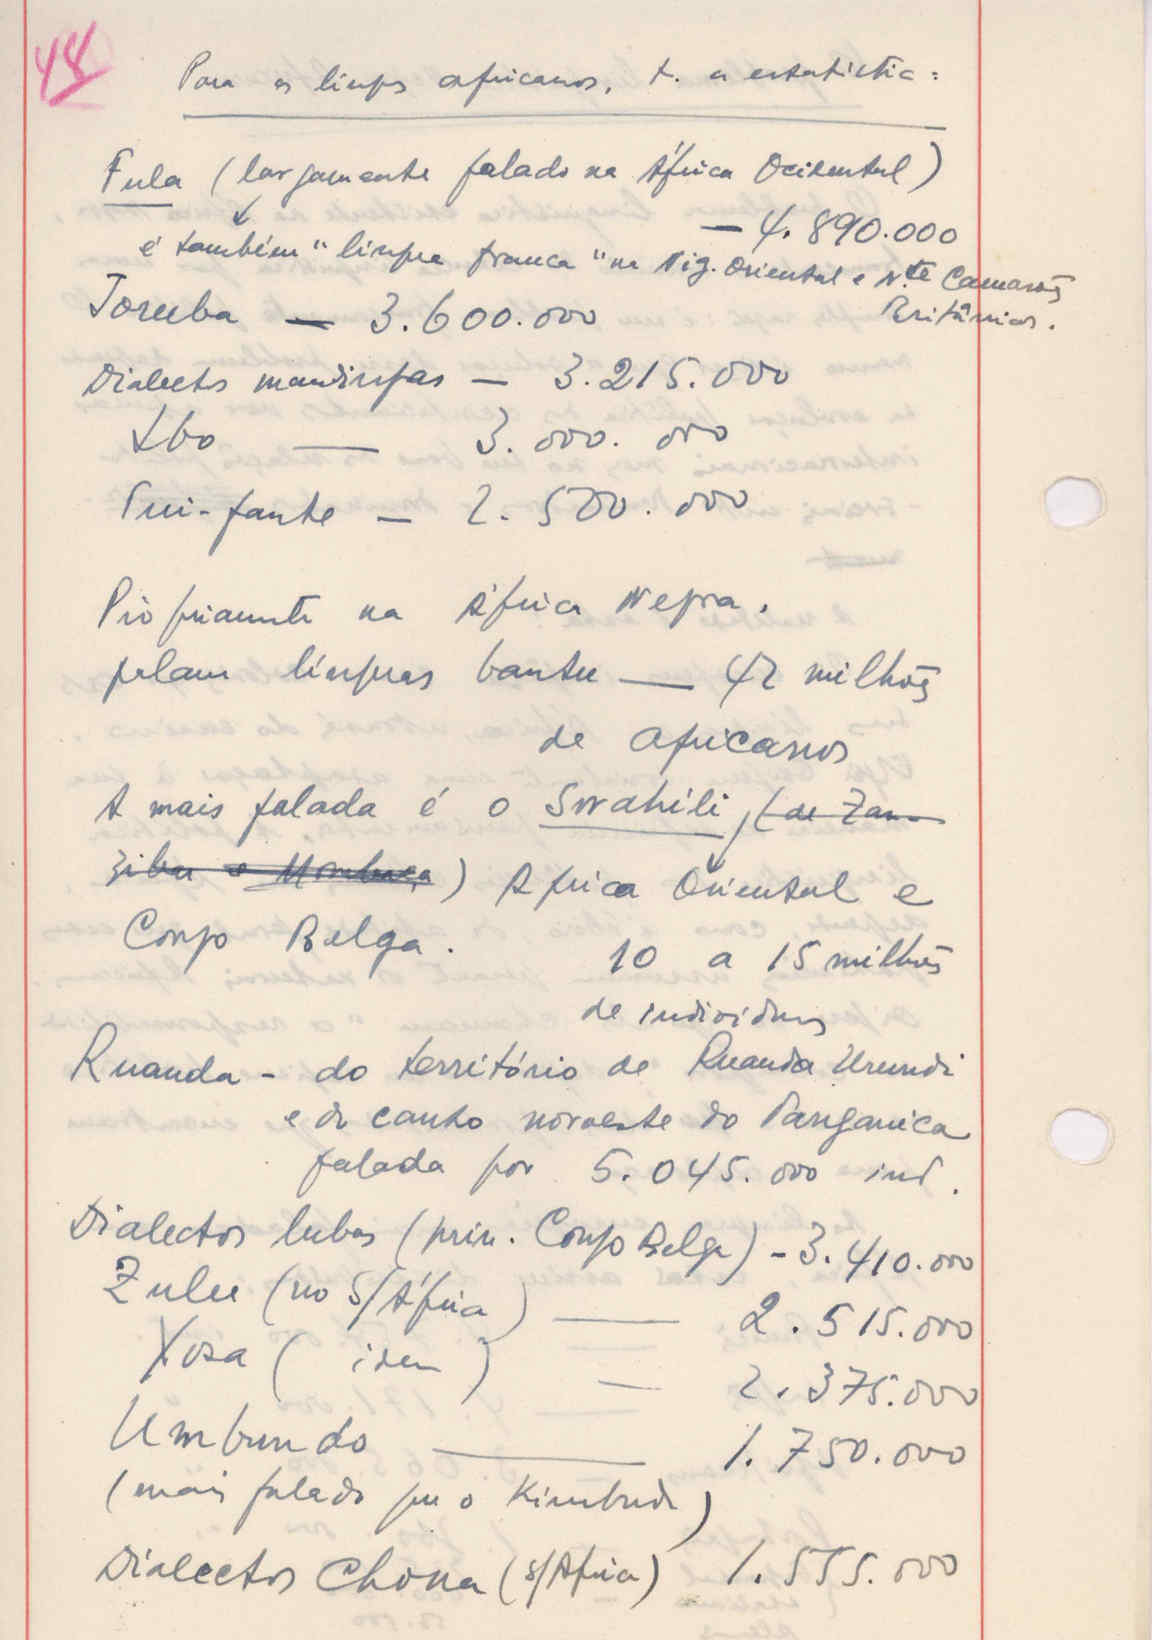 48
Para as línguas africanas, t. a estatística:
Fula (largamente falado na África Ocidental)
— 4.890.000
é também "língua franca" na Nig. Oriental e N.te Camarões
Britânicos.
Ioruba — 3.600.000
Dialectos mandingas — 3.215.000
Ibo — 3.000.000
Tui-fante — 2.500.000
Pròpriamente na África Negra.
falam línguas bantu — 42 milhões
de africanos
A mais falada é o Swahili, (de Zan-
zibar e Mombaça) África Oriental e
Congo Belga.
10 a 15 milhões
de indivíduos
Ruanda - do território de Ruanda Urundi
e do canto noroeste do Tanganica
falada por 5.045.000 ind.
Dialectos lubas (prin. Congo Belga) - 3.410.000
Zulu (no S/África) — 2.515.000
Xosa (idem) — 2.375.000
Umbundo — 1.750.000
(mais falado que o Kimbundo)
Dialectos Chona (S/África) 1.555.000